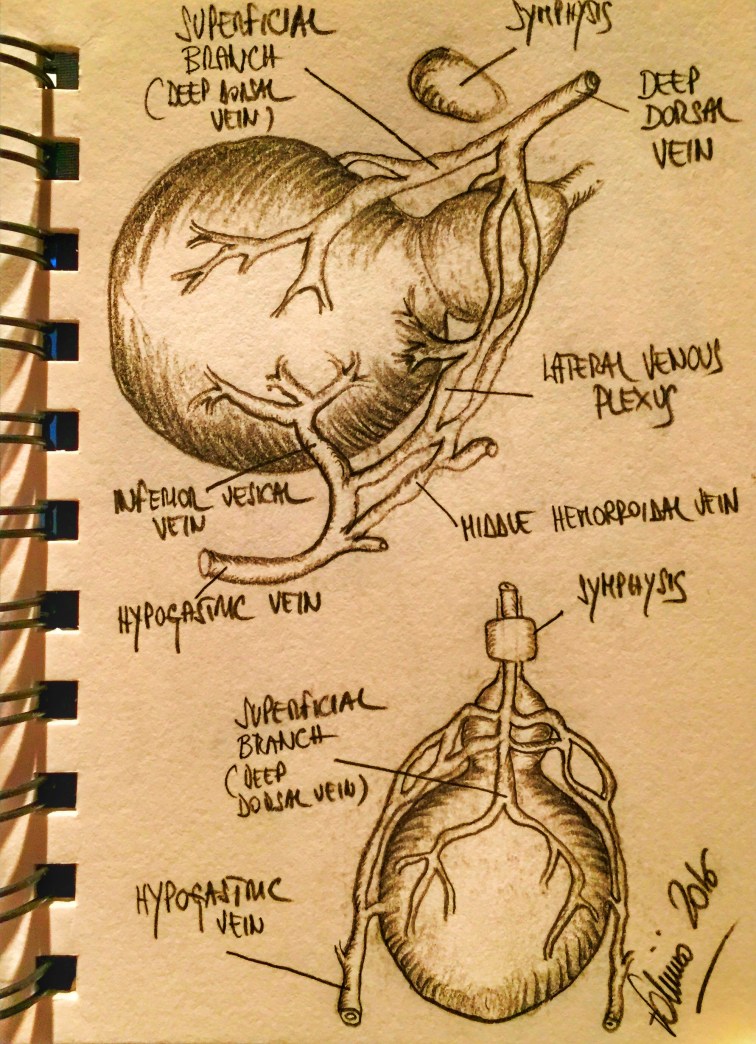 SUPERFICIAL
BRANCH
(DEEP DORSAL
VEIN)
SYMPHYSIS
DEEP
DORSAL
VEIN
LATERAL VENOUS
PLEXUS
INFERIOR VESICAL
VEIN
MIDDLE HEMORROIDAL VEIN
HYPOGASTRIC VEIN
SYMPHYSIS
SUPERFICIAL
BRANCH
(DEEP
DORSAL VEIN)
HYPOGASTRIC
VEIN
2016